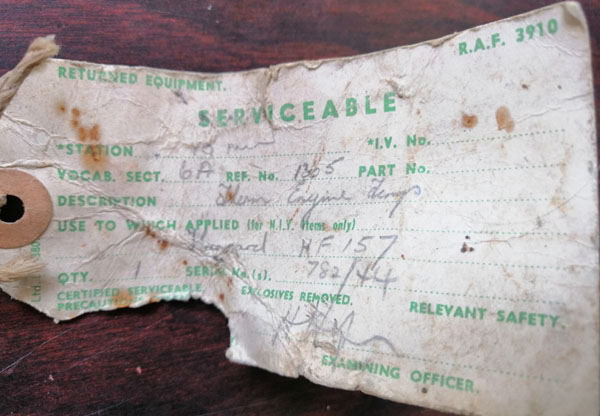 R.A.F. 3910
RETURNED EQUIPMENT.
SERVICEABLE
*STATION *I.V. No.
VOCAB. SECT. 6A REF. No. 1305 PART No.
DESCRIPTION Therm Engine Temps
USE TO WHICH APPLIED (for N.I.V items only)
HF 157
QTY. 1 SERIAL No.(s). 782/44
CERTIFIED SERVICEABLE EXPLOSIVES REMOVED. RELEVANT SAFETY.
EXAMINING OFFICER.